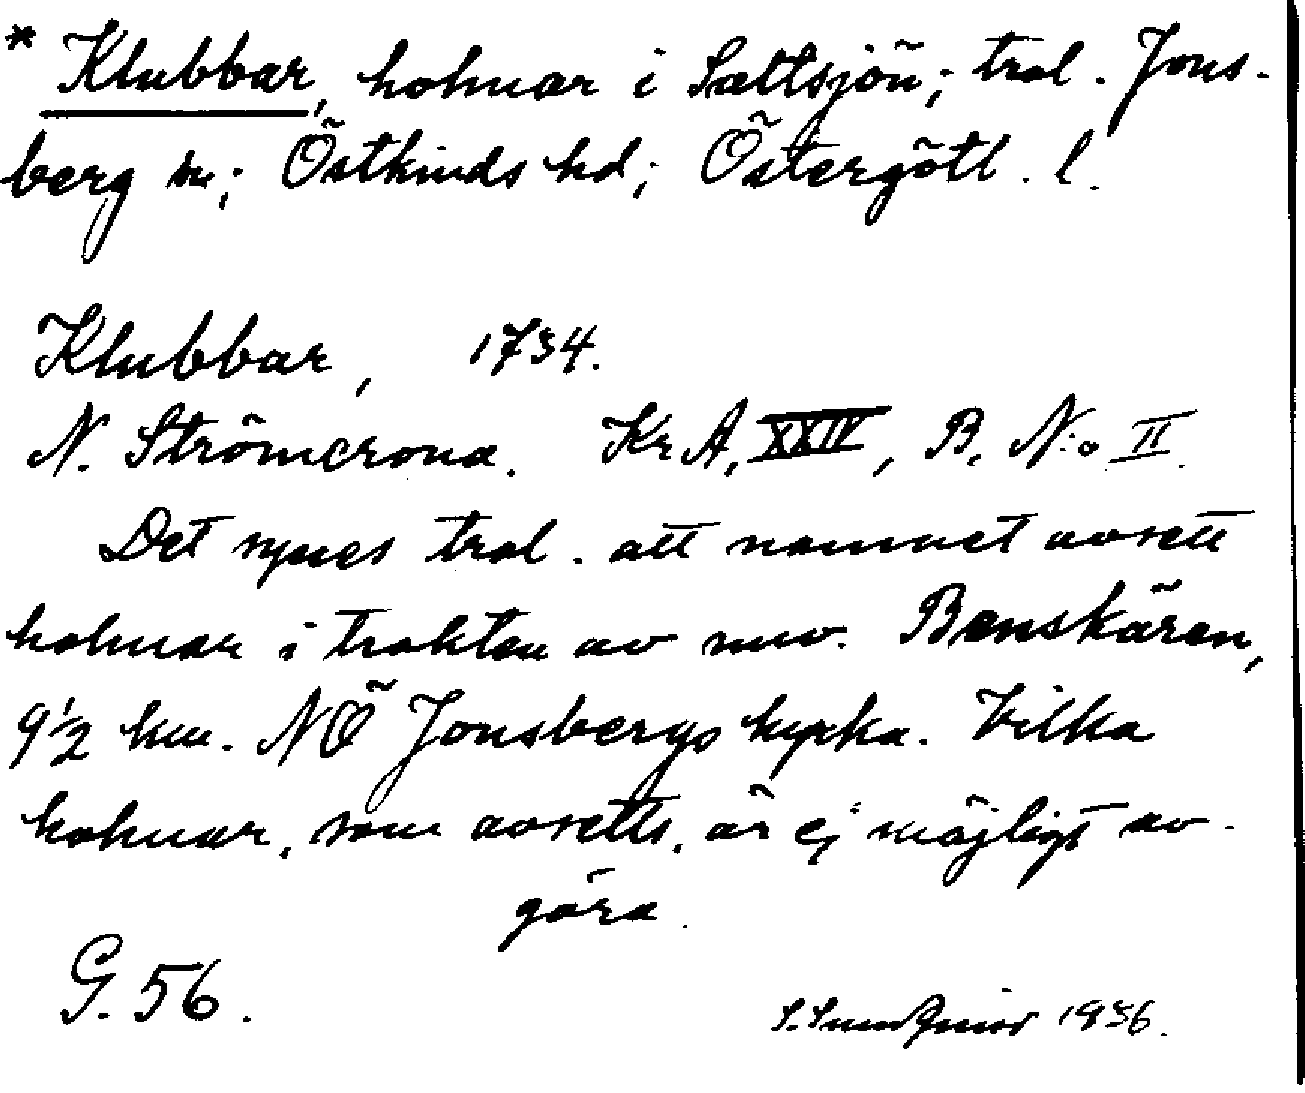 * Klubbar, holmar i Saltsjön; trol. Jons-
berg sn; Östkinds hd; Östergötl. l.
Klubbar, 1734.
N. Strömcrona. Kr. A, XXIV, B, N:o II.
Det synes trol. att namnet avsett
holmar i trakten av nuv. Benskären,
9½ km. NÖ Jonsbergs kyrka. Vilka
holmar, som avsetts, är ej möjligt av-
göra.
G. 56.
S. 1936.